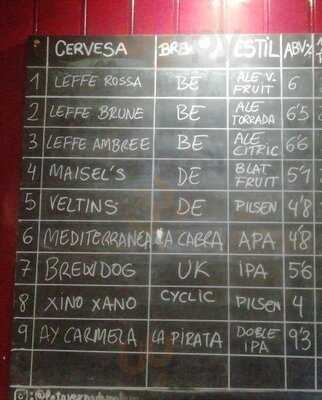 # CERVESA BRE ESTIL ABV%
1 LEFFE ROSSA BE ALE V. FRUIT 6
2 LEFFE BRUNE BE ALE TORRADA 6'5
3 LEFFE AMBREE BE ALE CITRIC 6'6
4 MAISEL'S DE BLAT FRUIT 5'1
5 VELTINS DE PILSEN 4'8
6 MEDITERRANEA LA CABRA APA 4'8
7 BREWDOG UK IPA 5'6
8 XINO XANO CYCLIC PILSEN 4
9 AY CARMELA LA PIRATA DOBLE IPA 9'3